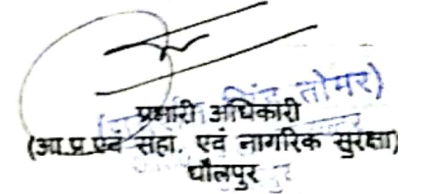 सिंह तोमर)
प्रभारी अधिकारी
(आ.प्र.एवं सहा. एवं नागरिक सुरक्षा)
धौलपुर